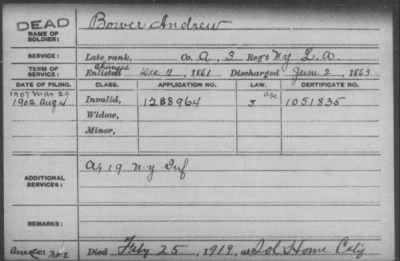 DEAD
NAME OF SOLDIER:
Bower Andrew
SERVICE:
Late rank, Co. A, 3 Reg't Ny L. a
TERM OF SERVICE:
changed
Enlisted Dec 11, 1861 Discharged June 2, 1863
DATE OF FILING. CLASS. APPLICATION NO. LAW. CERTIFICATE NO.
1907 Mar 29 age
1902 Aug 4 Invalid, 1288964 J 1051835
Widow,
Minor,
ADDITIONAL SERVICES:
A, 19 N-y Inf
REMARKS:
Died Feby 25, 1919, at Sol Home Calif